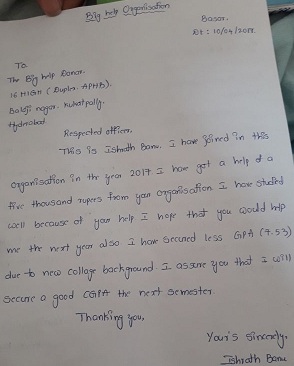 Big help Organisation
Basar.
Dt : 10/04/2018.
To
The Big help Donar.
16 HIGH (Duplex. APHB).
Balaji nagar. Kukatpally.
Hyderabad.
Respected officer.
This is Ishrath Banu. I have joined in this
organisation in the year 2017 I have got a help of a
five thousand rupees from your organisation I have studed
well because of your help I hope that you would help
me the next year also I have secured less GPA (7.53)
due to new collage background. I assure you that I will
secure a good CGPA the next semester.
Thanking you,
Your's sincerly,
Ishrath Banu